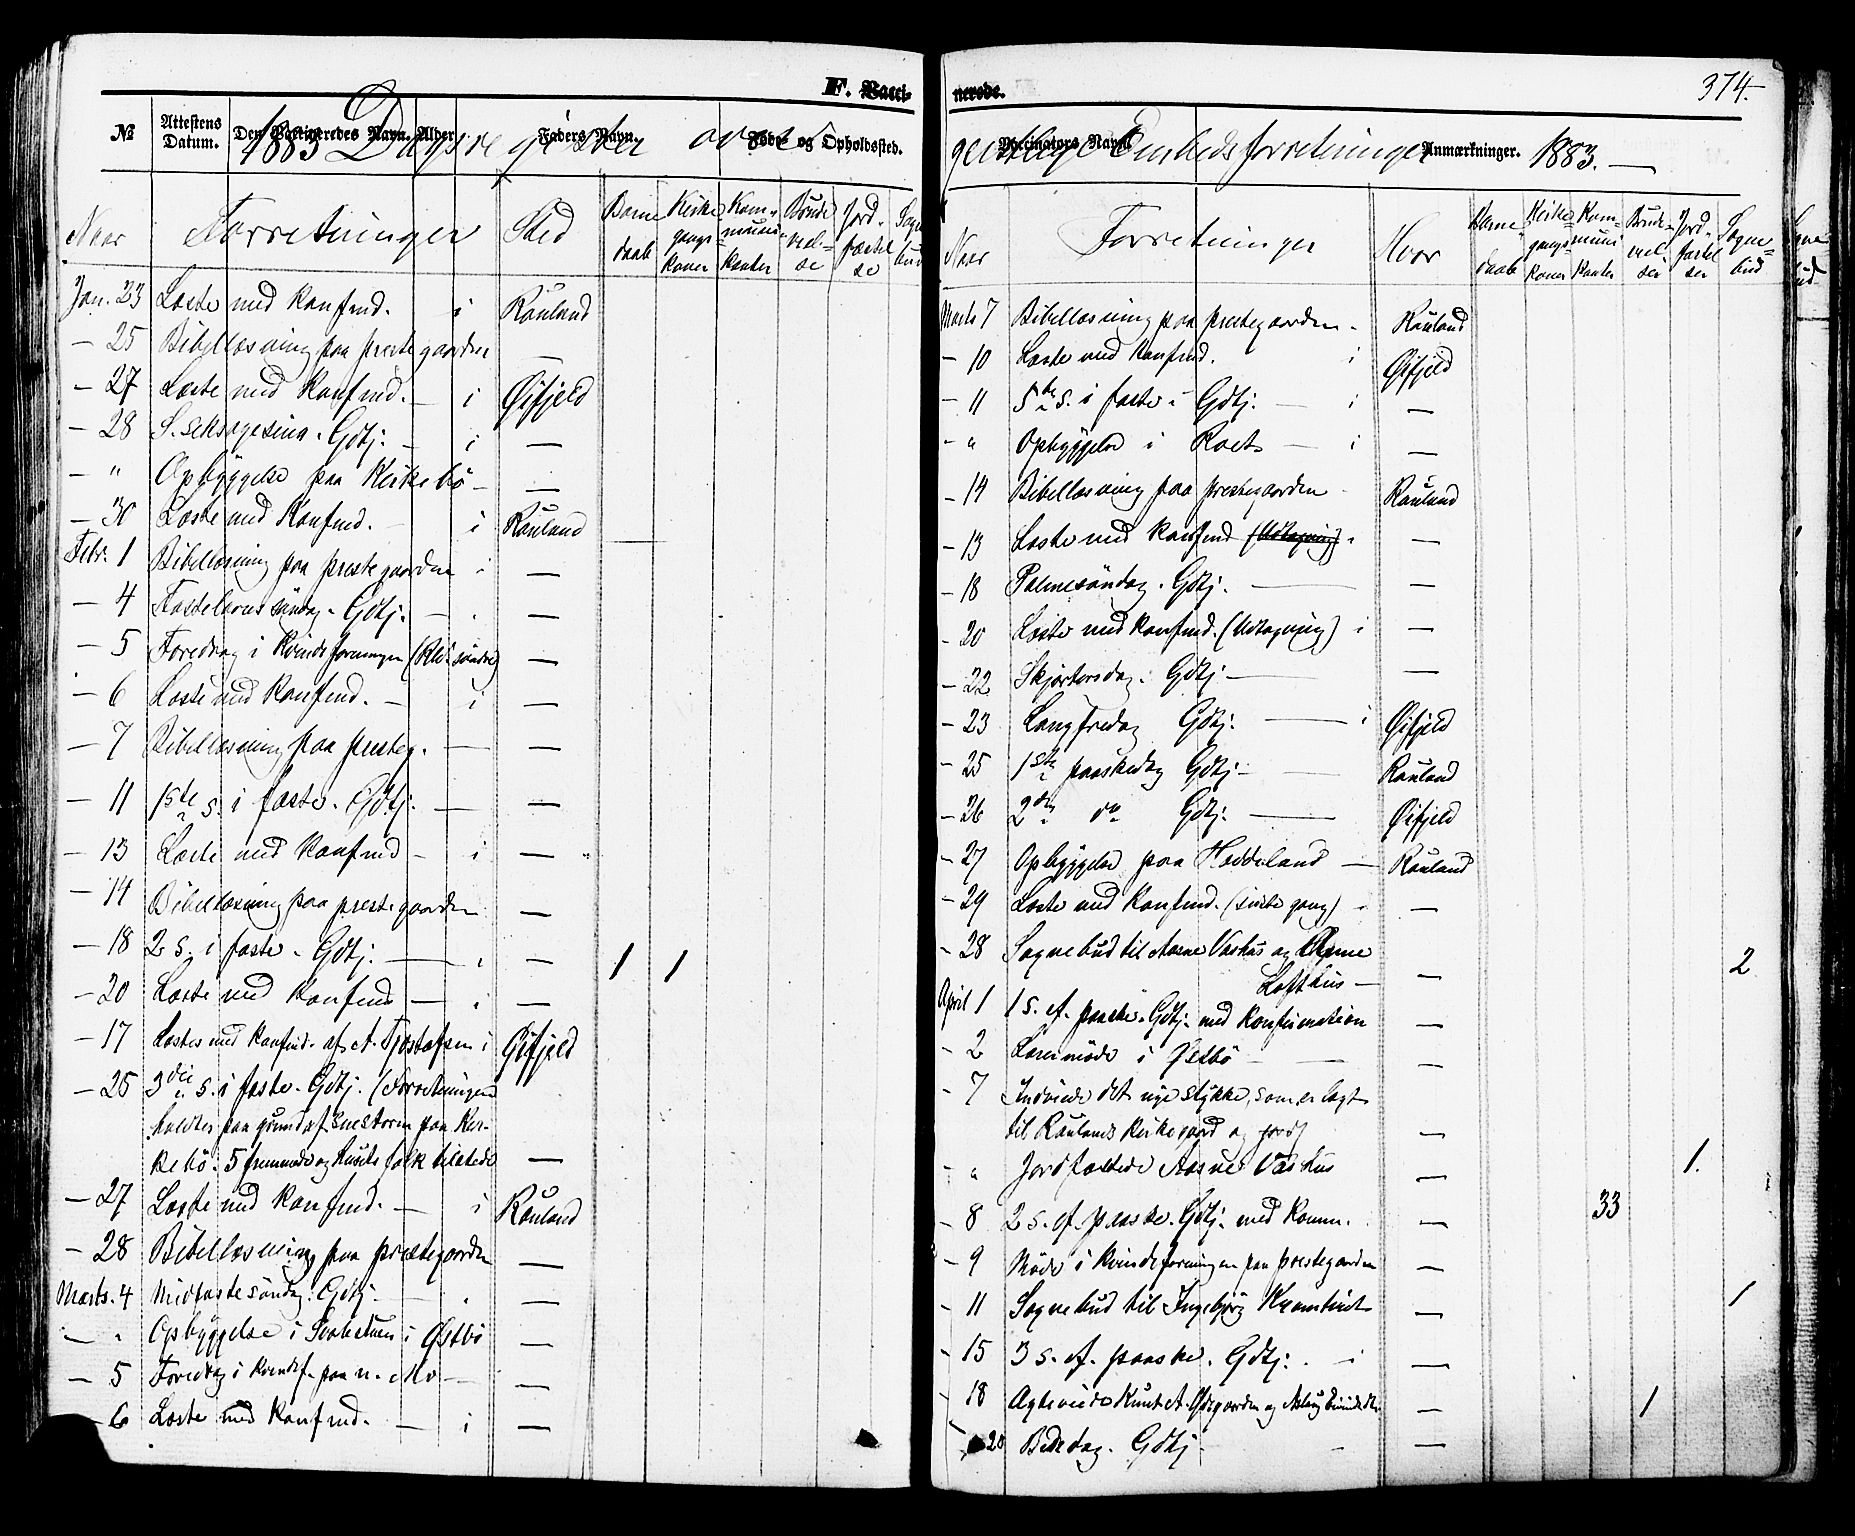 F. Vacci-
№ Attestens Datum. Den Vaccineredes Navn. Alder. Faders Navn. Føde- og Opholdssted.
1883 Dagsregister over
Naar Forretninger Sted Barne daab Kirke gangs koner Kom- muni- kanter Brude viel- se Jord- fæstel se Sogne bud
Jan. 23 Læste med konfmd. i Rauland
— 25 Bibellæsning paa prestegaarden —
— 27 Læste med konfmd. — i Øifjeld
— 28 S. seksagesima. Gdtj. — i —
— " Opbyggelse paa Kirkebö — —
— 30 Læste med konfmd. — i Rauland
Febr. 1 Bibellæsning paa prestegaarden i —
— 4 Fastelavns söndag. Gdtj. — . —
— 5 Foredrag i Kvindeforeningen —
— 6 Læste med konfmd. — i —
— 7 Bibellæsning paa presteg. — —
— 11 1ste s. i faste. Gdtj. — —
— 13 Læste med konfmd — i —
— 14 Bibellæsning paa prestegaarden —
— 18 2 s. i faste. Gdtj. — . — 1 1
— 20 Læste med konfmd — i —
— 17 Læstes med konfmd. af A. Tjostofsen i Øifjeld
— 25 3die s. i faste. Gdtj. (Forretningen
holdtes paa grund af snestorm paa Kir-
kebö. 5 fremmede og husets folk tilstede —
— 27 Læste med konfmd. — i Rauland
— 28 Bibellæsning paa prestegaarden —
Marts. 4 Midfastesöndag. Gdtj. — . —
— " Opbyggelse i i Østbö —
— 5 Foredrag i kvindef. paa n. Mo — —
— 6 Læste med konfmd. — i —
nerede.
374.
Vaccinators Navn. Anmærkninger.
geistlige Embedsforretninger 1883. —
Naar Forretninger Hvor Barne- daab Kirke- gangs koner Kom- muni kanter Brude- viel- ser Jord- fæstel ser Sogne- bud
Marts 7 Bibellæsning paa prestegaarden — Rauland
— 10 Læste med konfmd. i Øifjeld
— 11 5te s. i faste — Gdtj. — i —
— " Opbyggelse i — i —
— 14 Bibellæsning paa prestegaarden — Rauland
— 13 Læste med konfmd (Udtagning) . —
— 18 Palmesöndag. Gdtj. — —
— 20 Læste med konfmd. (Udtagning) i —
— 22 Skjærtorsdag. Gdtj. — —
— 23 Langfredag Gdtj. — i Øifjeld
— 25 1ste paaskedag Gdtj. — Rauland
— 26 2den do Gdtj. — Øifjeld
— 27 Opbyggelse paa Haddeland — Rauland
— 29 Læste med konfmd. (sidste gang) . —
— 28 Sognebud til Aasne Vashus og
Lofthus — — 2
April 1 1 s. ef. paaske. Gdtj. med konfirmation —
— 2 Lærermöde i Østbö — —
— 7 Indviede det nye stykke, som er lagt
til Raulands kirkegaard og jordf —
— " Jordfæstede Aasne Vashus — 1.
— 8 2 s. ef. paaske. Gdtj. med komm. — 33
— 9 Möde i kvindeforeningen paa prestegaarden —
— 11 Sognebud til Ingebjørg — 1
— 15 3 s. ef. paaske. Gdtj. . — i —
— 18 Agteviede Knut A. og Aslaug — 1
— 20 Bededag. Gdtj — —